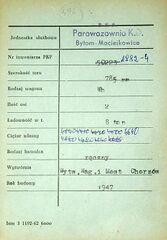 P K P
Jednostka służbowa
Parowozownia K.D.
Bytom-Maciejkowice
Nr inwentarza PKP
1882-4
Szerokość toru
785 mm
Rodzaj wagonu
Wb
Ilość osi
2
Ładowność w t.
8 ton
Ciężar własny
Rodzaj hamulca
ręczny
Wytwórnia
Wytw. Wag. i Most Chorzów
Rok budowy
1947